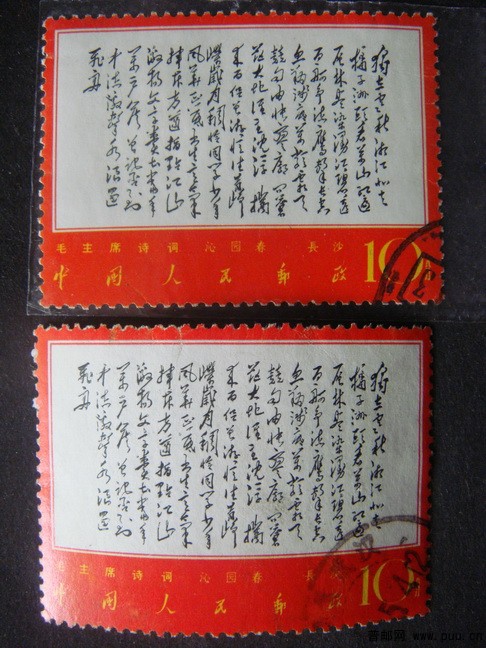 独立寒秋湘江北去
橘子洲头看万山红遍
层林尽染漫江碧透
百舸争流鹰击长空
鱼翔浅底万类霜天
竞自由怅寥廓问苍
茫大地谁主沉浮携
来百侣曾游忆往昔峥
嵘岁月稠恰同学少年
风华正茂书生意气
挥斥方遒指点江山
激扬文字粪土当年
万户侯曾记否到
中流击水浪遏
飞舟
毛主席诗词 沁园春 长沙
中国人民邮政 10
独立寒秋湘江北去
橘子洲头看万山红遍
层林尽染漫江碧透
百舸争流鹰击长空
鱼翔浅底万类霜天
竞自由怅寥廓问苍
茫大地谁主沉浮携
来百侣曾游忆往昔峥
嵘岁月稠恰同学少年
风华正茂书生意气
挥斥方遒指点江山
激扬文字粪土当年
万户侯曾记否到
中流击水浪遏
飞舟
毛主席诗词 沁园春 长
中国人民邮政 10
普邮网 www.puu.cn